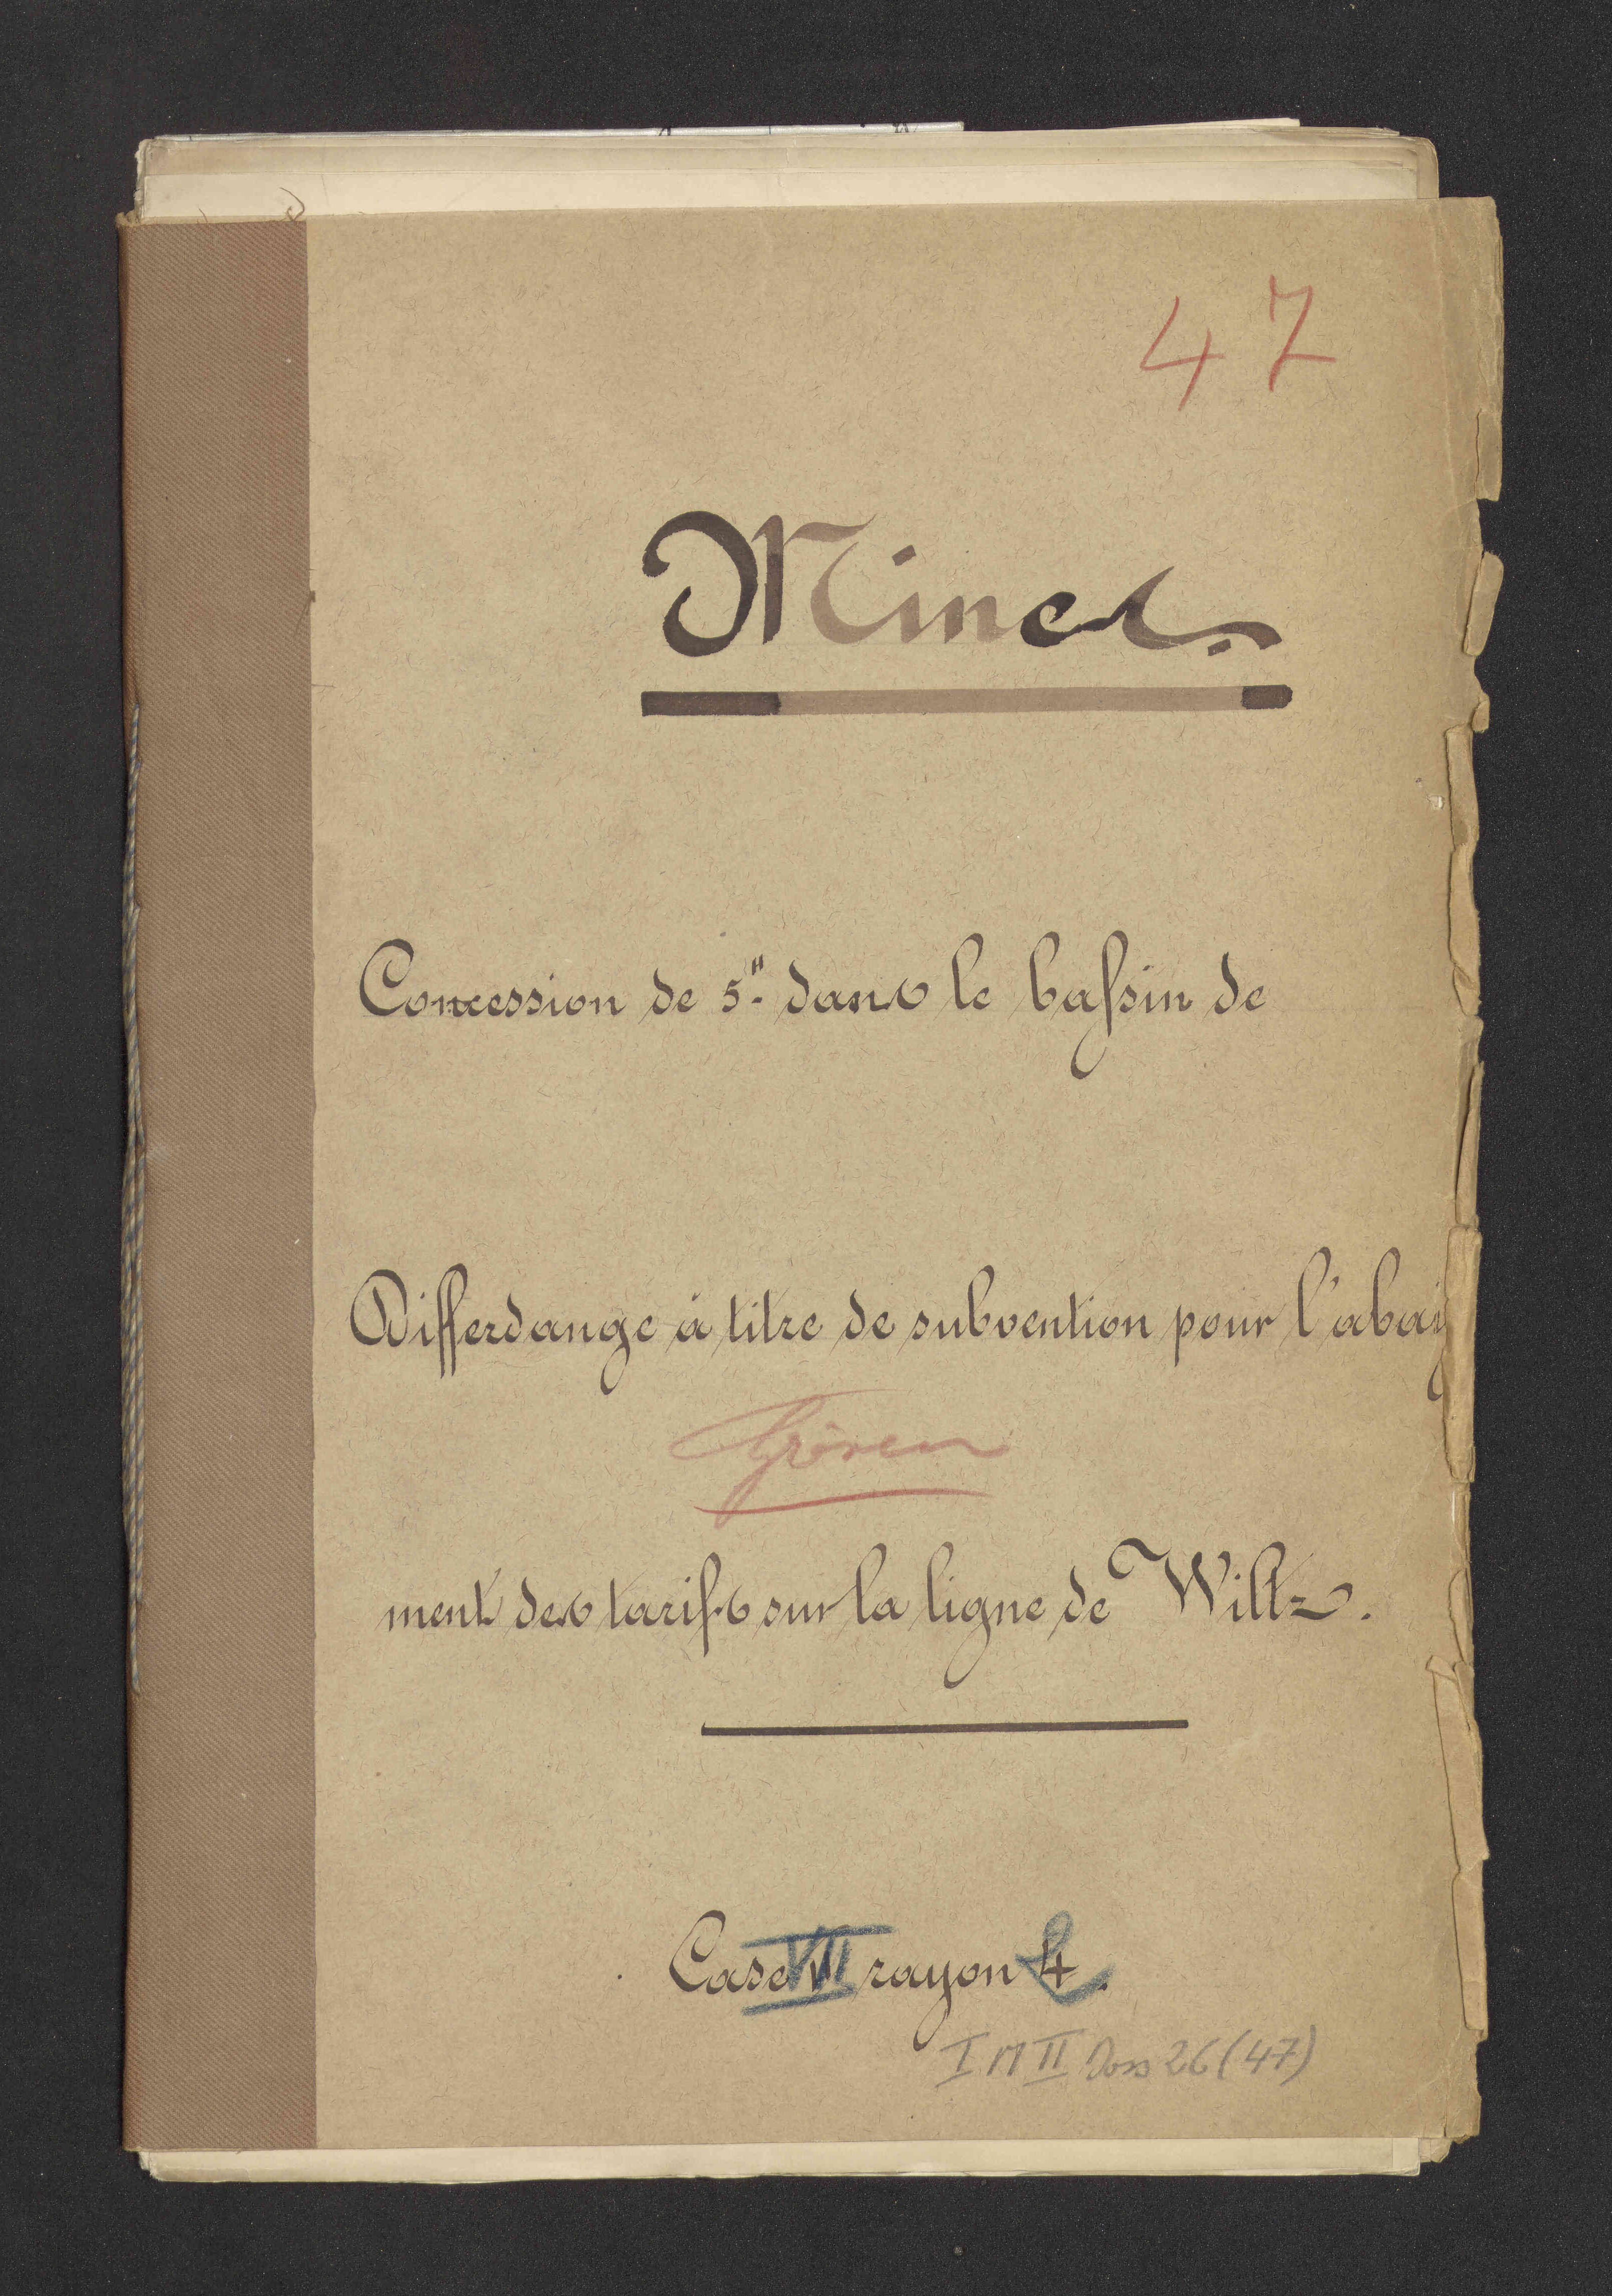 47
Mines.
Concession de 5" dans le bassin de
Differdange à titre de subvention pour l'abais
ment des tarifs sur la ligne de Wiltz.
Case VII rayon
I M II Doss 26 (47)